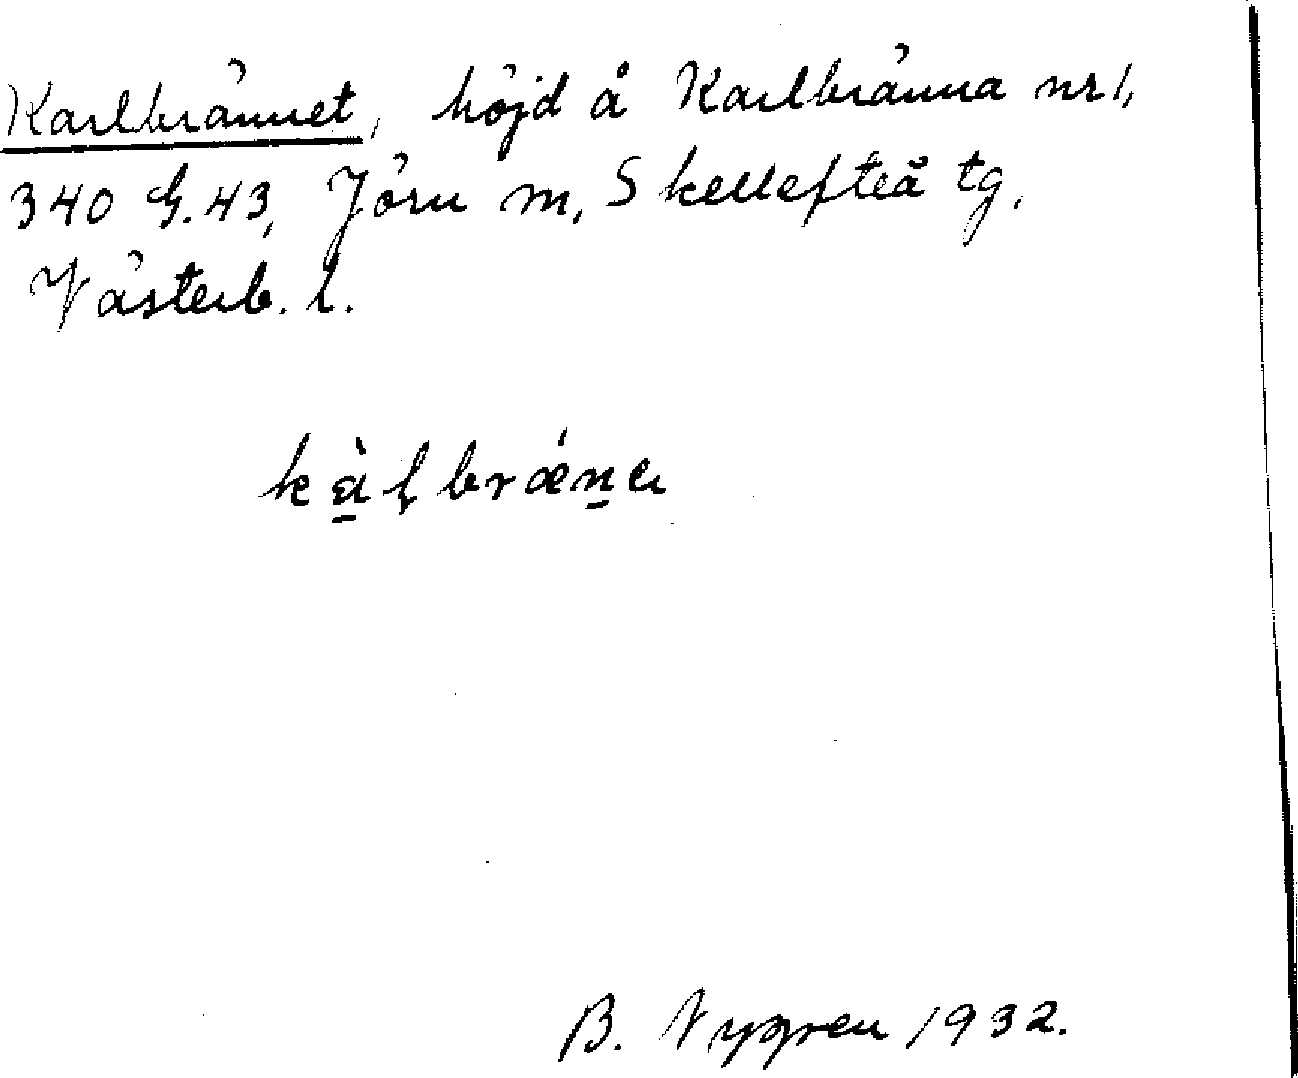 Karlbrännet, höjd å Karlbränna nr 1,
340 G. 43, Jörn m, Skellefteå tg,
Västerb. l.
B. Nygren 1932.